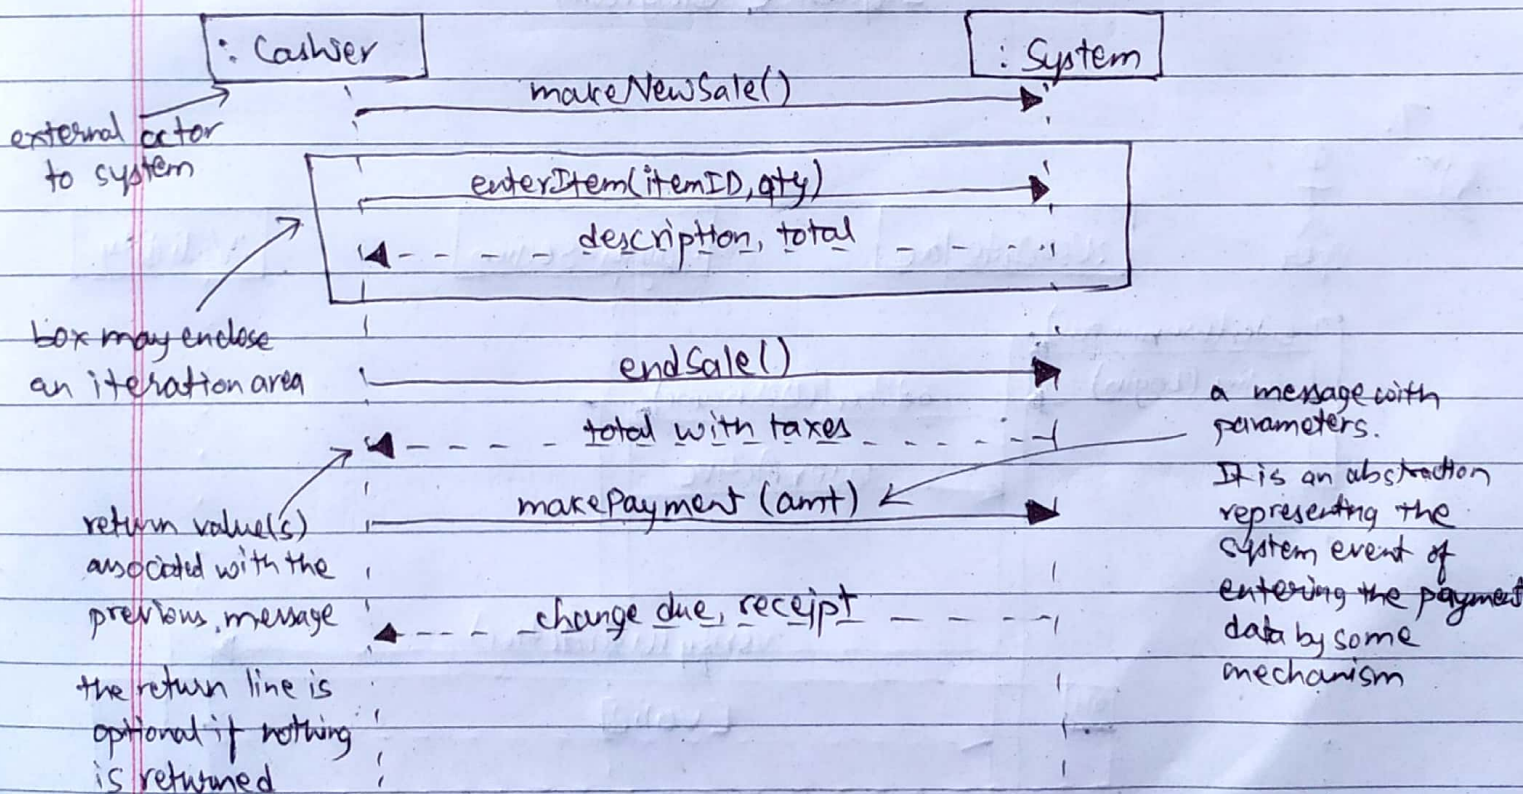 : Cashier
: System
makeNewSale()
external actor
to system
enterItem(itemID, qty)
description, total
box may enclose
an iteration area
endSale()
total with taxes
a message with
parameters.
It is an abstraction
representing the
system event of
entering the payment
data by some
mechanism
makePayment (amt)
return value(s)
associated with the
previous message
change due, receipt
the return line is
optional if nothing
is returned